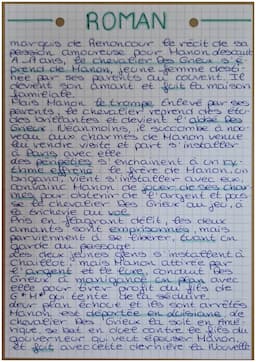 ROMAN
marquis de Renoncour le récit de sa
passion amoureuse pour Manon
A ans, le chevalier Des Grieux s'é-
prend de Manon, jeune femme desti-
née par ses parents au couvent. Il
devient son amant et fuit la maison
familiale.
Mais Manon le trompe. Enlevé par ses
parents, le chevalier reprend des étu-
des brillantes et devient l'abbé Des
Grieux. Néanmoins, il succombe à nou-
veau aux charmes de Manon venue
lui rendre visite et part s'installer
à Paris avec elle.
Les s'enchaînent à un ry-
thme effréné : le frère de Manon, un
brigand, vient s'installer avec eux,
convainc Manon de jouer de ses char-
mes pour obtenir de l'argent et pas-
se le chevalier Des Grieux au jeu, à
la tricherie au vol.
Pris en flagrant délit, les deux
amants sont emprisonnés, mais
parviennent à se libérer, tuant un
garde au passage.
Les deux jeunes gens s'installent à
Chaillot, mais Manon attirée par
l'argent et le luxe, conduit Des
Grieux à manigancer un plan avec
elle pour tirer profit du fils de
G*M* qui tente de la séduire.
Leur plan échoue et ils sont arrêtés.
Manon est déportée en Louisiane, le
chevalier Des Grieux la suit en Amé-
rique, se bat en duel contre le fils du
gouverneur qui veut épouser Manon,
et fuit avec cette dernière la Nouvelle